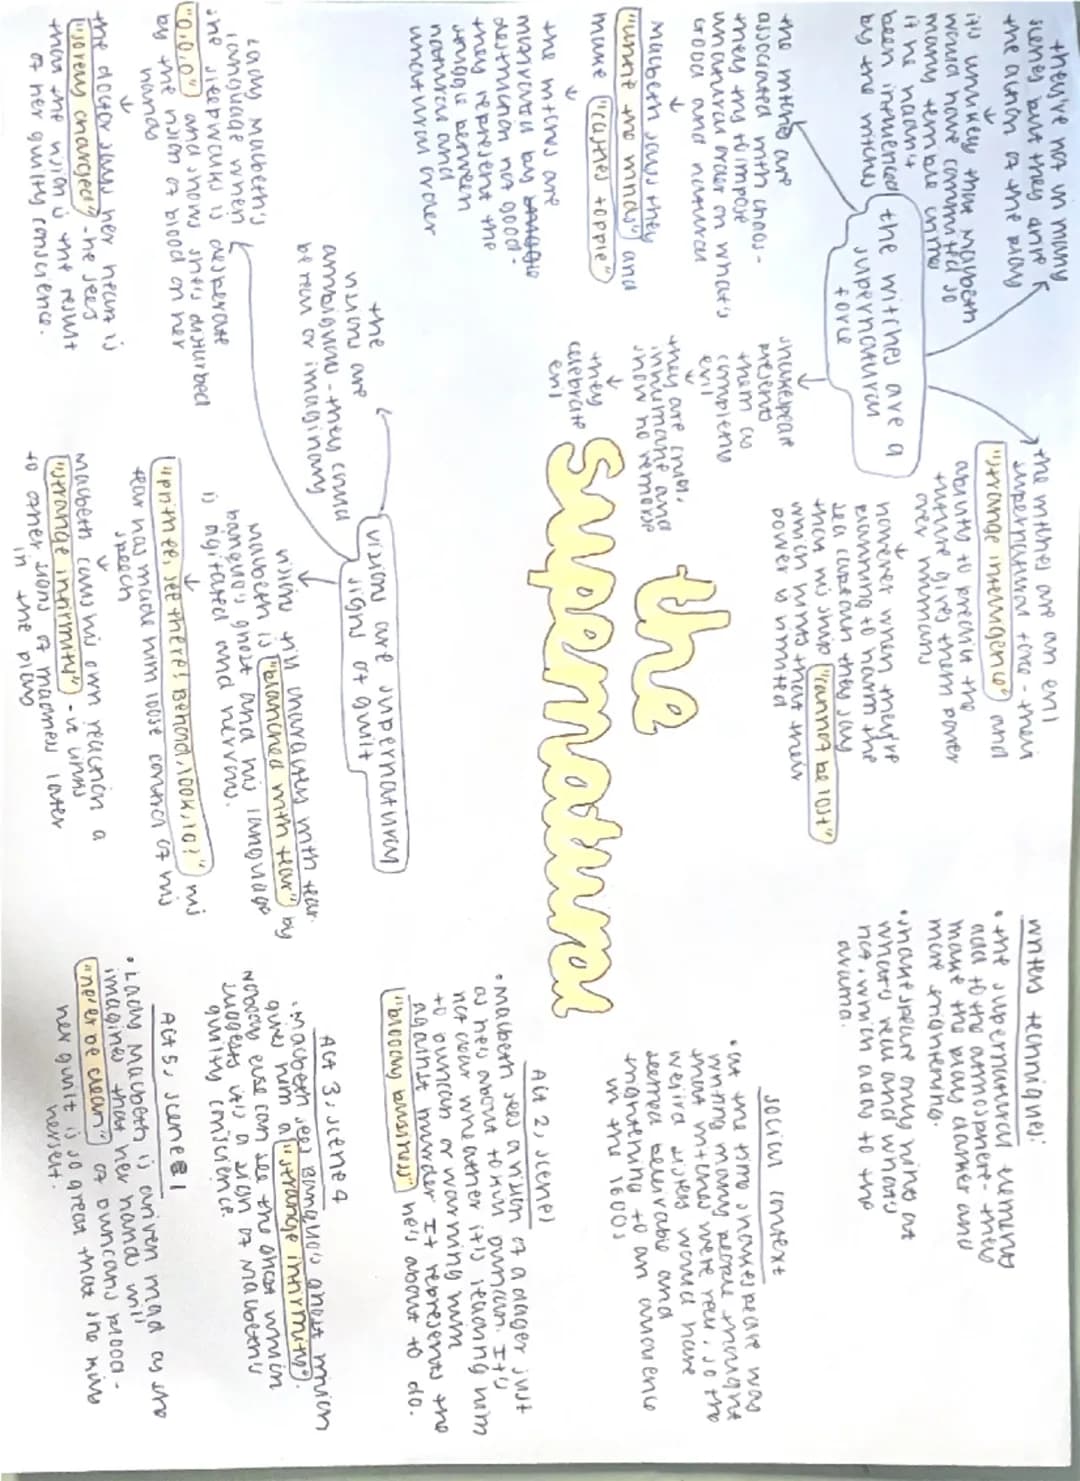 they're not in many
scenes but they drive
the action of the play
it's unlikely that Macbeth
would have committed so
many terrible crimes
if he hadn't
been influenced
by the witches
the witches are a
supernatural
force
the witches are an evil
supernatural force - their
"strange intelligence" and
ability to predict the
future gives them power
over humans
however when they're
planning to harm the
sea captain they say
that his ship "cannot be lost"
which hints that their
power is limited
Shakespeare
presents
them as
completely
evil
they are cruel,
inhumane and
show no remorse
they
celebrate
evil
the witches are
associated with chaos -
they try to impose
unnatural order on what's
good and natural
Macbeth says they
"untie the winds" and
make "castles topple"
the witches are
motivated by
destruction not good -
they represent the
struggle between
natural and
unnatural order
the
supernatural
writers techniques:
• the supernatural elements
add to the atmosphere - they
make the play darker and
more frightening.
• Shakespeare only hints at
what's real and what's
not, which adds to the
drama.
social context
• at the time Shakespeare was
writing many people thought
that witches were real, so the
weird sisters would have
seemed believable and
frightening to an audience
in the 1600s
visions are supernatural
signs of guilt
the
visions are
ambiguous - they could
be real or imaginary
Lady Macbeth's
language when
she sleepwalks is desperate
"O,O,O" and shows she's disturbed
by the vision of blood on her
hands
the doctor says her heart is
"sorely charged" - he sees
that the vision is the result
of her guilty conscience.
visions fill characters with fear.
Macbeth is "blanched with fear" by
Banquo's ghost and his language
is agitated and nervous.
"prithee, see there! Behold, look, lo!" his
fear has made him lose control of his
speech
Macbeth calls his own reaction a
"strange infirmity" - it links
to other signs of madness later
in the play
Act 2, scene 1
• Macbeth sees a vision of a dagger just
as he's about to kill Duncan. It's
not clear whether it's leading him
to Duncan or warning him
against murder. It represents the
"bloody business" he's about to do.
Act 3, scene 4
• Macbeth sees Banquo's ghost which
gives him a "strange infirmity".
Nobody else can see the ghost which
suggests it's a sign of Macbeth's
guilty conscience.
Act 5, scene 1
• Lady Macbeth is driven mad as she
imagines that her hands will
"ne'er be clean" of Duncan's blood -
her guilt is so great that she kills
herself.